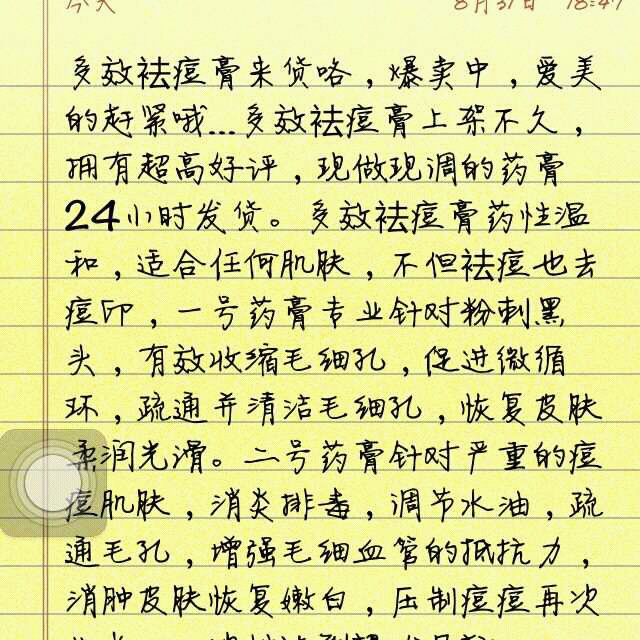 今天 8月31日 18:47
多效祛痘膏来货咯，爆卖中，爱美
的赶紧哦...多效祛痘膏上架不久，
拥有超高好评，现做现调的药膏
24小时发货。多效祛痘膏药性温
和，适合任何肌肤，不但祛痘也去
痘印，一号药膏专业针对粉刺黑
头，有效收缩毛细孔，促进微循
环，疏通并清洁毛细孔，恢复皮肤
柔润光滑。二号药膏针对严重的痘
痘肌肤，消炎排毒，调节水油，疏
通毛孔，增强毛细血管的抵抗力，
消肿皮肤恢复嫩白，压制痘痘再次